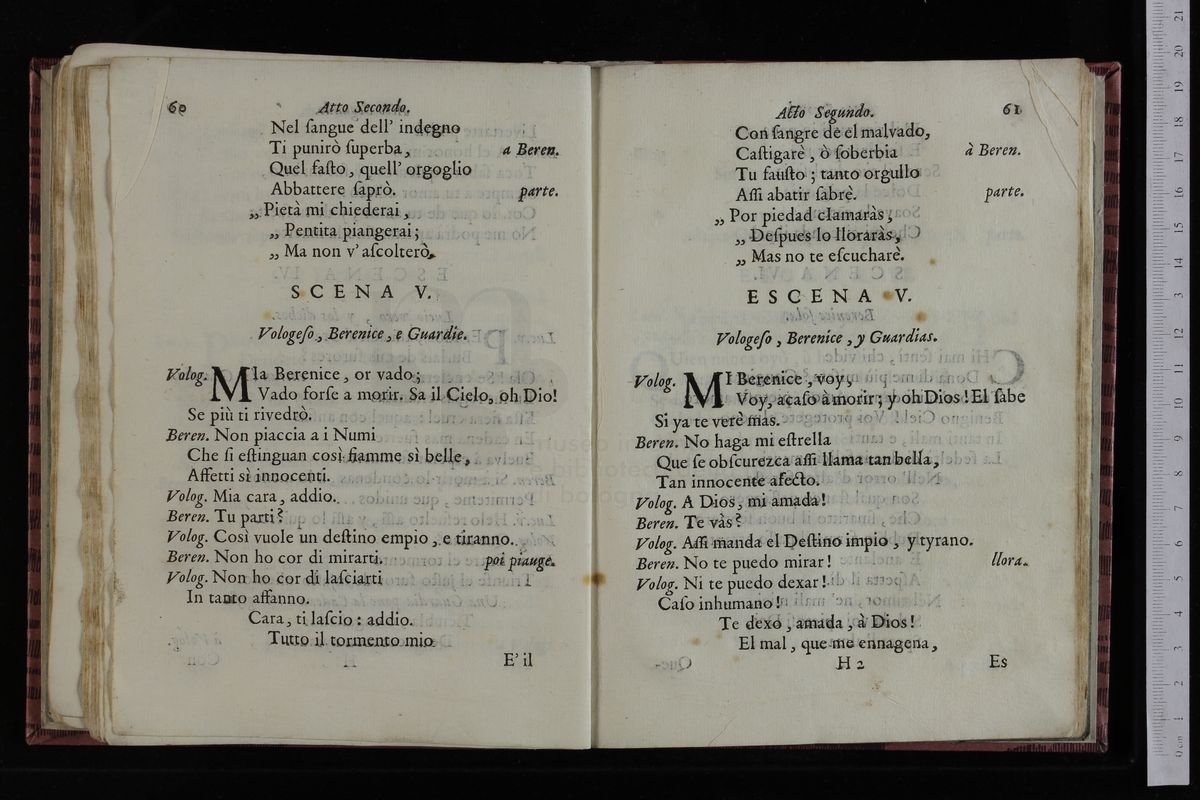 60
Atto Secondo.
Nel ſangue dell' indegno
Ti punirò ſuperba, a Beren.
Quel faſto, quell' orgoglio
Abbattere ſaprò. parte.
„ Pietà mi chiederai,
„ Pentita piangerai;
„ Ma non v' aſcolterò.
SCENA V.
Vologeſo, Berenice, e Guardie.
Volog. MIa Berenice, or vado;
Vado forſe a morir. Sa il Cielo, oh Dio!
Se più ti rivedrò.
Beren. Non piaccia a i Numi
Che ſi eſtinguan così fiamme sì belle,
Affetti sì innocenti.
Volog. Mia cara, addio.
Beren. Tu parti?
Volog. Così vuole un deſtino empio, e tiranno.
Beren. Non ho cor di mirarti. poi piauge.
Volog. Non ho cor di laſciarti
In tanto affanno.
Cara, ti laſcio: addio.
Tutto il tormento mio
E' il
Acto Segundo.
61
Con ſangre de el malvado,
Caſtigarè, ò ſoberbia à Beren.
Tu fauſto; tanto orgullo
Aſſi abatir ſabrè. parte.
„ Por piedad clamaràs,
„ Deſpues lo lloraràs,
„ Mas no te eſcucharè.
ESCENA V.
Vologeſo, Berenice, y Guardias.
Volog. MI Berenice, voy,
Voy, acaſo à morir; y oh Dios! El ſabe
Si ya te verè mas.
Beren. No haga mi eſtrella
Que ſe obſcurezca aſſi llama tan bella,
Tan innocente afecto.
Volog. A Dios, mi amada!
Beren. Te vàs?
Volog. Aſſi manda el Deſtino impio, y tyrano.
Beren. No te puedo mirar! llora.
Volog. Ni te puedo dexar!
Caſo inhumano!
Te dexo, amada, à Dios!
El mal, que me ennagena,
H 2
Es